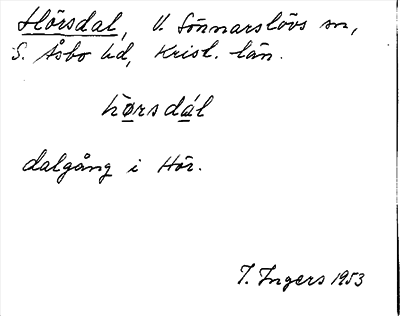 Hörsdal, V. Sönnarslövs sn,
S. Åsbo hd, Krist. län.
hørsdál
dalgång i Hör.
I. Ingers 1953